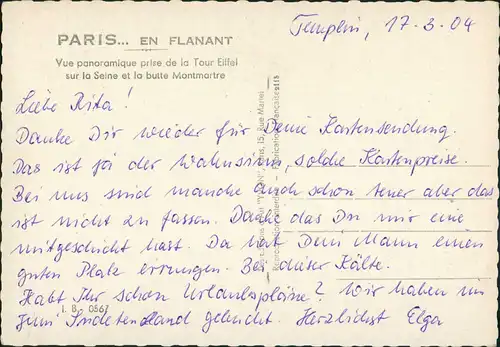 Templin, 17-3-04
PARIS... EN FLANANT
Vue panoramique prise de la Tour Eiffel
sur la Seine et la butte Montmartre
Liebe Rita!
Danke Dir wieder für Deine Kartensendung.
Das ist ja der Wahnsinn, solche Kartenpreise.
Bei uns sind manche auch schon teuer aber das
ist nicht zu fassen. Danke das Du mir eine
mitgeschickt hast. Da hat Dein Mann einen
guten Platz errungen. Bei dieser Kälte.
Habt Ihr schon Urlaubspläne? Wir haben in
zum geliebt. Herzlichst Elga
I. B. 0567
"YVON", Paris, 15, Rue Martel
Reproduction interdite - Fabrication Française